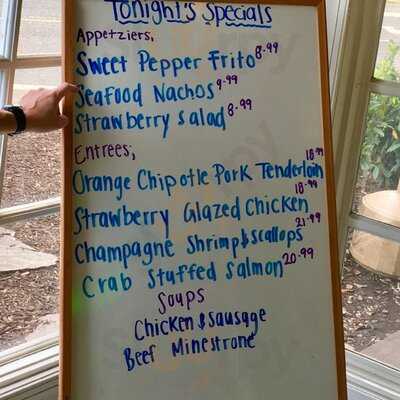 Tonight's Specials
Appetziers,
Sweet Pepper Frito 8.99
Seafood Nachos 9.99
Strawberry Salad 8.99
Entrees;
Orange Chipotle Pork Tenderloin 18.99
Strawberry Glazed Chicken 18.99
Champagne Shrimp & scallops 21.99
Crab Stuffed Salmon 20.99
Soups
Chicken & sausage
Beef Minestrone